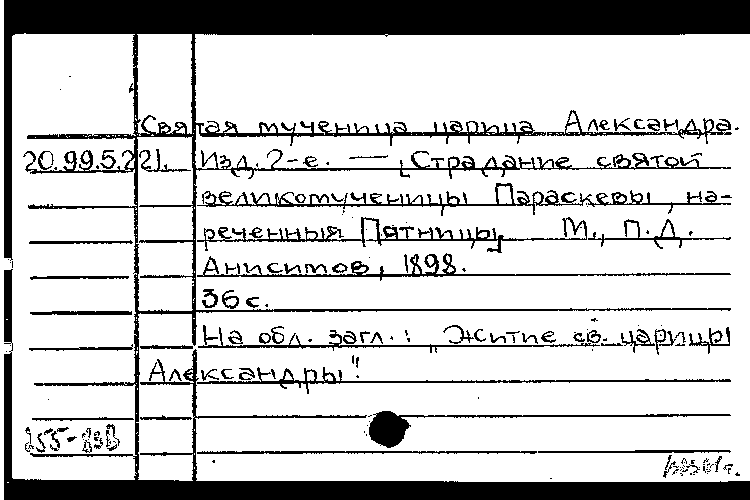 Святая мученица царица Александра.
20.99.5.221. Изд. 2-е. — [Страдание святой
великомученицы Параскевы, на-
реченныя Пятницы] М., П.Д.
Анисимов, 1898.
36 с.
На обл. загл.: "Житие св. царицы
Александры"
255-83В